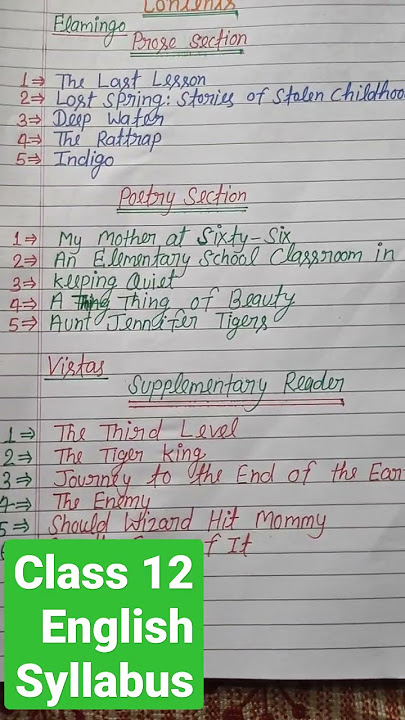 Contents
Flamingo
Prose Section
1⇒ The Last Lesson
2⇒ Lost Spring: Stories of Stolen Childhoo
3⇒ Deep Water
4⇒ The Rattrap
5⇒ Indigo
Poetry Section
1⇒ My Mother at Sixty-Six
2⇒ An Elementary School Classroom in
3⇒ Keeping Quiet
4⇒ A Thing of Beauty
5⇒ Aunt Jennifer Tigers
Vistas
Supplementary Reader
1⇒ The Third Level
2⇒ The Tiger King
3⇒ Journey to the End of the Ear
4⇒ The Enemy
5⇒ Should Wizard Hit Mommy
f It
Class 12
English
Syllabus